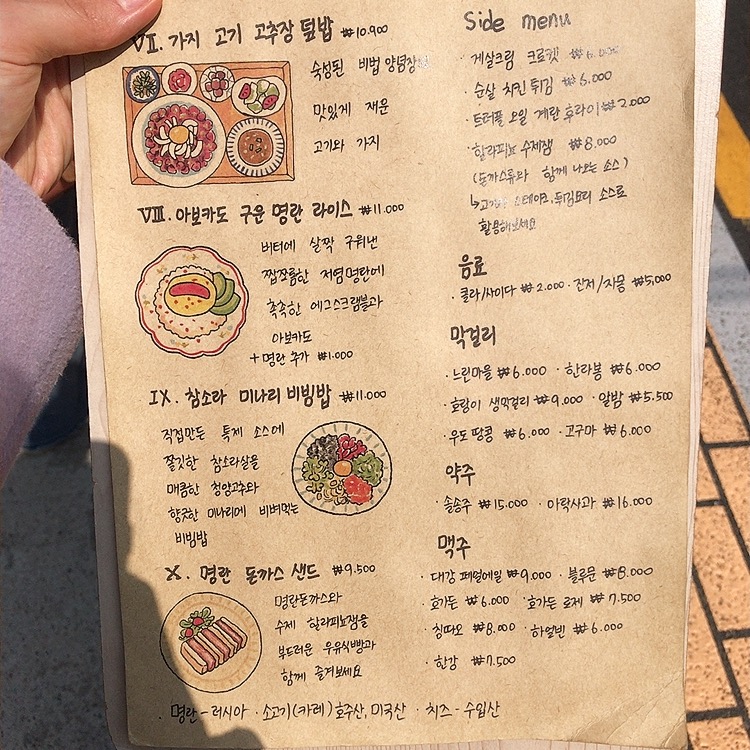 VII. 가지 고기 고추장 덮밥 ₩10.900
숙성된 비법 양념장
맛있게 재운
고기와 가지
VIII. 아보카도 구운 명란 라이스 ₩11.000
버터에 살짝 구워낸
짭쪼름한 저염명란에
촉촉한 에그스크램블과
아보카도
+ 명란 추가 ₩1.000
IX. 참소라 미나리 비빔밥 ₩11.000
직접만든 특제 소스에
쫄깃한 참소라살을
매콤한 청양고추와
향긋한 미나리에 비벼먹는
비빔밥
X. 명란 돈까스 샌드 ₩9.500
명란돈까스와
수제 할라피뇨잼을
부드러운 우유식빵과
함께 즐겨보세요
Side menu
· 게살크림 크로켓 ₩6.000
· 순살 치킨 튀김 ₩6.000
· 트러플 오일 계란 후라이 ₩2.000
· 할라피뇨 수제잼 ₩8.000
(돈까스류와 함께 나오는 소스)
↳ 스테이크, 튀김요리 소스로
활용해보세요
음료
· 콜라/사이다 ₩2.000 · 진저/자몽 ₩5,000
막걸리
· 느린마을 ₩6.000 · 한라봉 ₩6.000
· 호랑이 생막걸리 ₩9.000 · 알밤 ₩5.500
· 우도 땅콩 ₩6.000 · 고구마 ₩6.000
약주
· 솔송주 ₩15.000 · 아락사과 ₩16.000
맥주
· 대강 페일에일 ₩9.000 · 블루문 ₩8.000
· 호가든 ₩6.000 · 호가든 로제 ₩7.500
· 칭따오 ₩8.000 · 하얼빈 ₩6.000
· 한강 ₩7.500
명란 - 러시아 · 소고기(카레) 호주산, 미국산 · 치즈 - 수입산